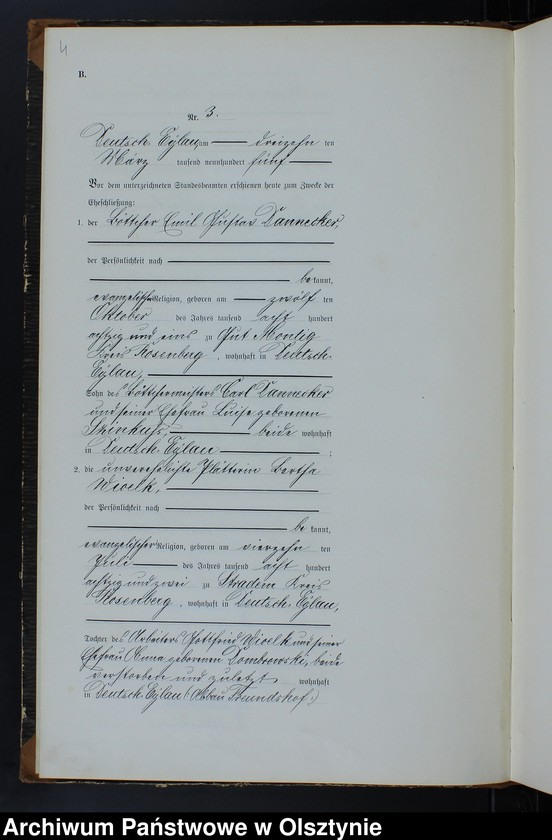 4
B.
Nr. 3.
Deutsch Eylau, am dreizehn ten
März tausend neunhundert fünf
Vor dem unterzeichneten Standesbeamten erschienen heute zum Zwecke der
Eheschließung:
1. der Böttcher Emil Gustav Dannecker,
der Persönlichkeit nach
be kannt,
evangelischer Religion, geboren am zwölf ten
Oktober des Jahres tausend acht hundert
achtzig und eins zu Gut Montig
Kreis Rosenberg, wohnhaft in Deutsch
Eylau,
Sohn des Böttchermeisters Carl Dannecker
und seiner Ehefrau Luise geborenen
beide wohnhaft
in Deutsch Eylau ;
2. die unverehelichte Plätterin Bertha
Wioelk,
der Persönlichkeit nach
be kannt,
evangelischer Religion, geboren am vierzehn ten
Juli des Jahres tausend acht hundert
achtzig und zwei zu Stradem Kreis
Rosenberg, wohnhaft in Deutsch Eylau,
Tochter des Arbeiters Gottfried Wioelk und seiner
Ehefrau Anna geborenen Dombrowski, beide
verstorben und zuletzt wohnhaft
in Deutsch Eylau (Abbau Freundshof.)
Archiwum Państwowe w Olsztynie